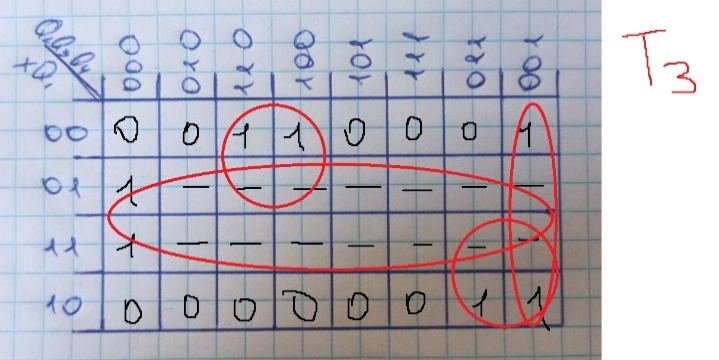 T3
000 010 110 100 101 111 011 001
00 0 0 1 1 0 0 0 1
01 1 — — — — — — —
11 1 — — — — — — —
10 0 0 0 0 0 0 1 1